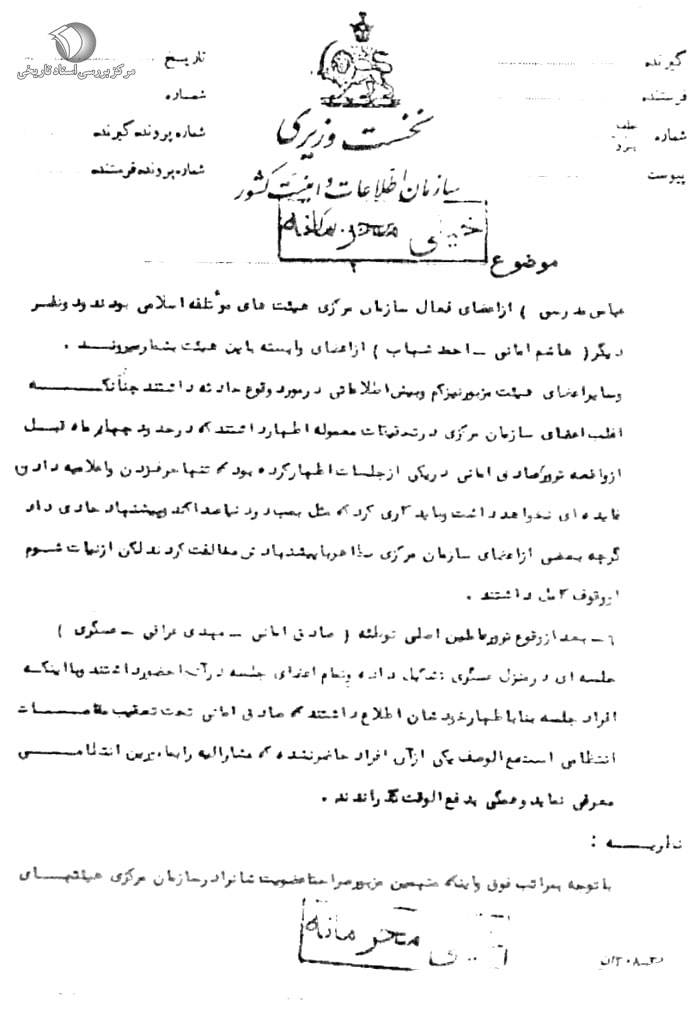 مرکز بررسی اسناد تاریخی
گیرنده
فرستنده
شماره
پیوست
تاریخ
شماره
شماره پرونده گیرنده
شماره پرونده فرستنده
نخست وزیری
سازمان اطلاعات و امنیت کشور
خیلی محرمانه
موضوع
عباس مدرسی ) از اعضای فعال سازمان مرکزی هیئت های مؤتلفه اسلامی بودند و دو نفر
دیگر ( هاشم امانی – احمد شهاب ) از اعضای وابسته باین هیئت بشمار میروند .
وسایر اعضای هیئت مزبور نیز کم و بیش اطلاعاتی در مورد وقوع حادثه داشتند چنانکه
اغلب اعضای سازمان مرکزی در تحقیقات معموله اظهار داشتند که در حدود چهار ماه قبل
از واقعه ترور صادق امانی در یکی از جلسات اظهار کرده بود که تنها حرف زدن و اعلامیه دادن
فایده ای نخواهد داشت و باید کاری کرد که مثل بمب دود نماید صدا کند و پیشنهاد حادی داد
گرچه بعضی از اعضای سازمان مرکزی ظاهرا با پیشنهادش مخالفت کردند لکن از نیات شوم
او وقوف کامل داشتند .
٦ – بعد از وقوع ترور عاملین اصلی توطئه ( صادق امانی – مهدی عراقی – عسگری )
جلسه ای در منزل عسگری تشکیل داده و تمام اعضای جلسه در آنجا حضور داشتند و با اینکه
افراد جلسه بنا باظهار خودشان اطلاع داشتند که صادق امانی تحت تعقیب مقامات
انتظامی است مع الوصف یکی از آن افراد حاضر نشده که مشارالیه را به مامورین انتظامی
معرفی نماید و همگی بدفع الوقت گذراندند .
نظریه :
با توجه بمراتب فوق و اینکه متهمین مزبور صراحتا عضویت شان را در سازمان مرکزی هیئتهای
خیلی محرمانه